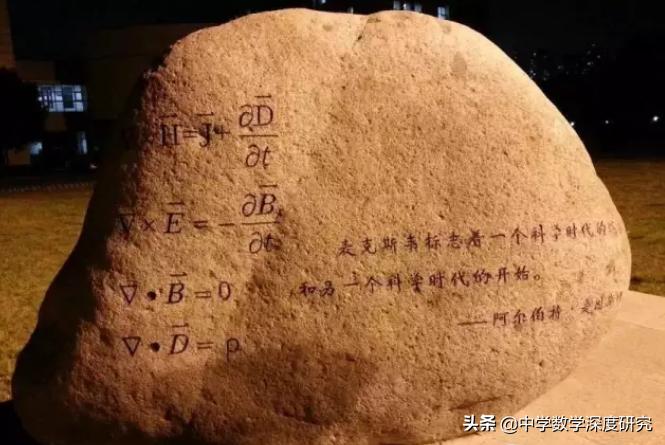 H̅=J̅+∂D̅/∂t
∇×E̅=-∂B̅/∂t
∇•B̅=0
∇•D̅=ρ
麦克斯韦标志着一个科学时代的
和另一个科学时代的开始。
——阿尔伯特·爱因
头条 @中学数学深度研究